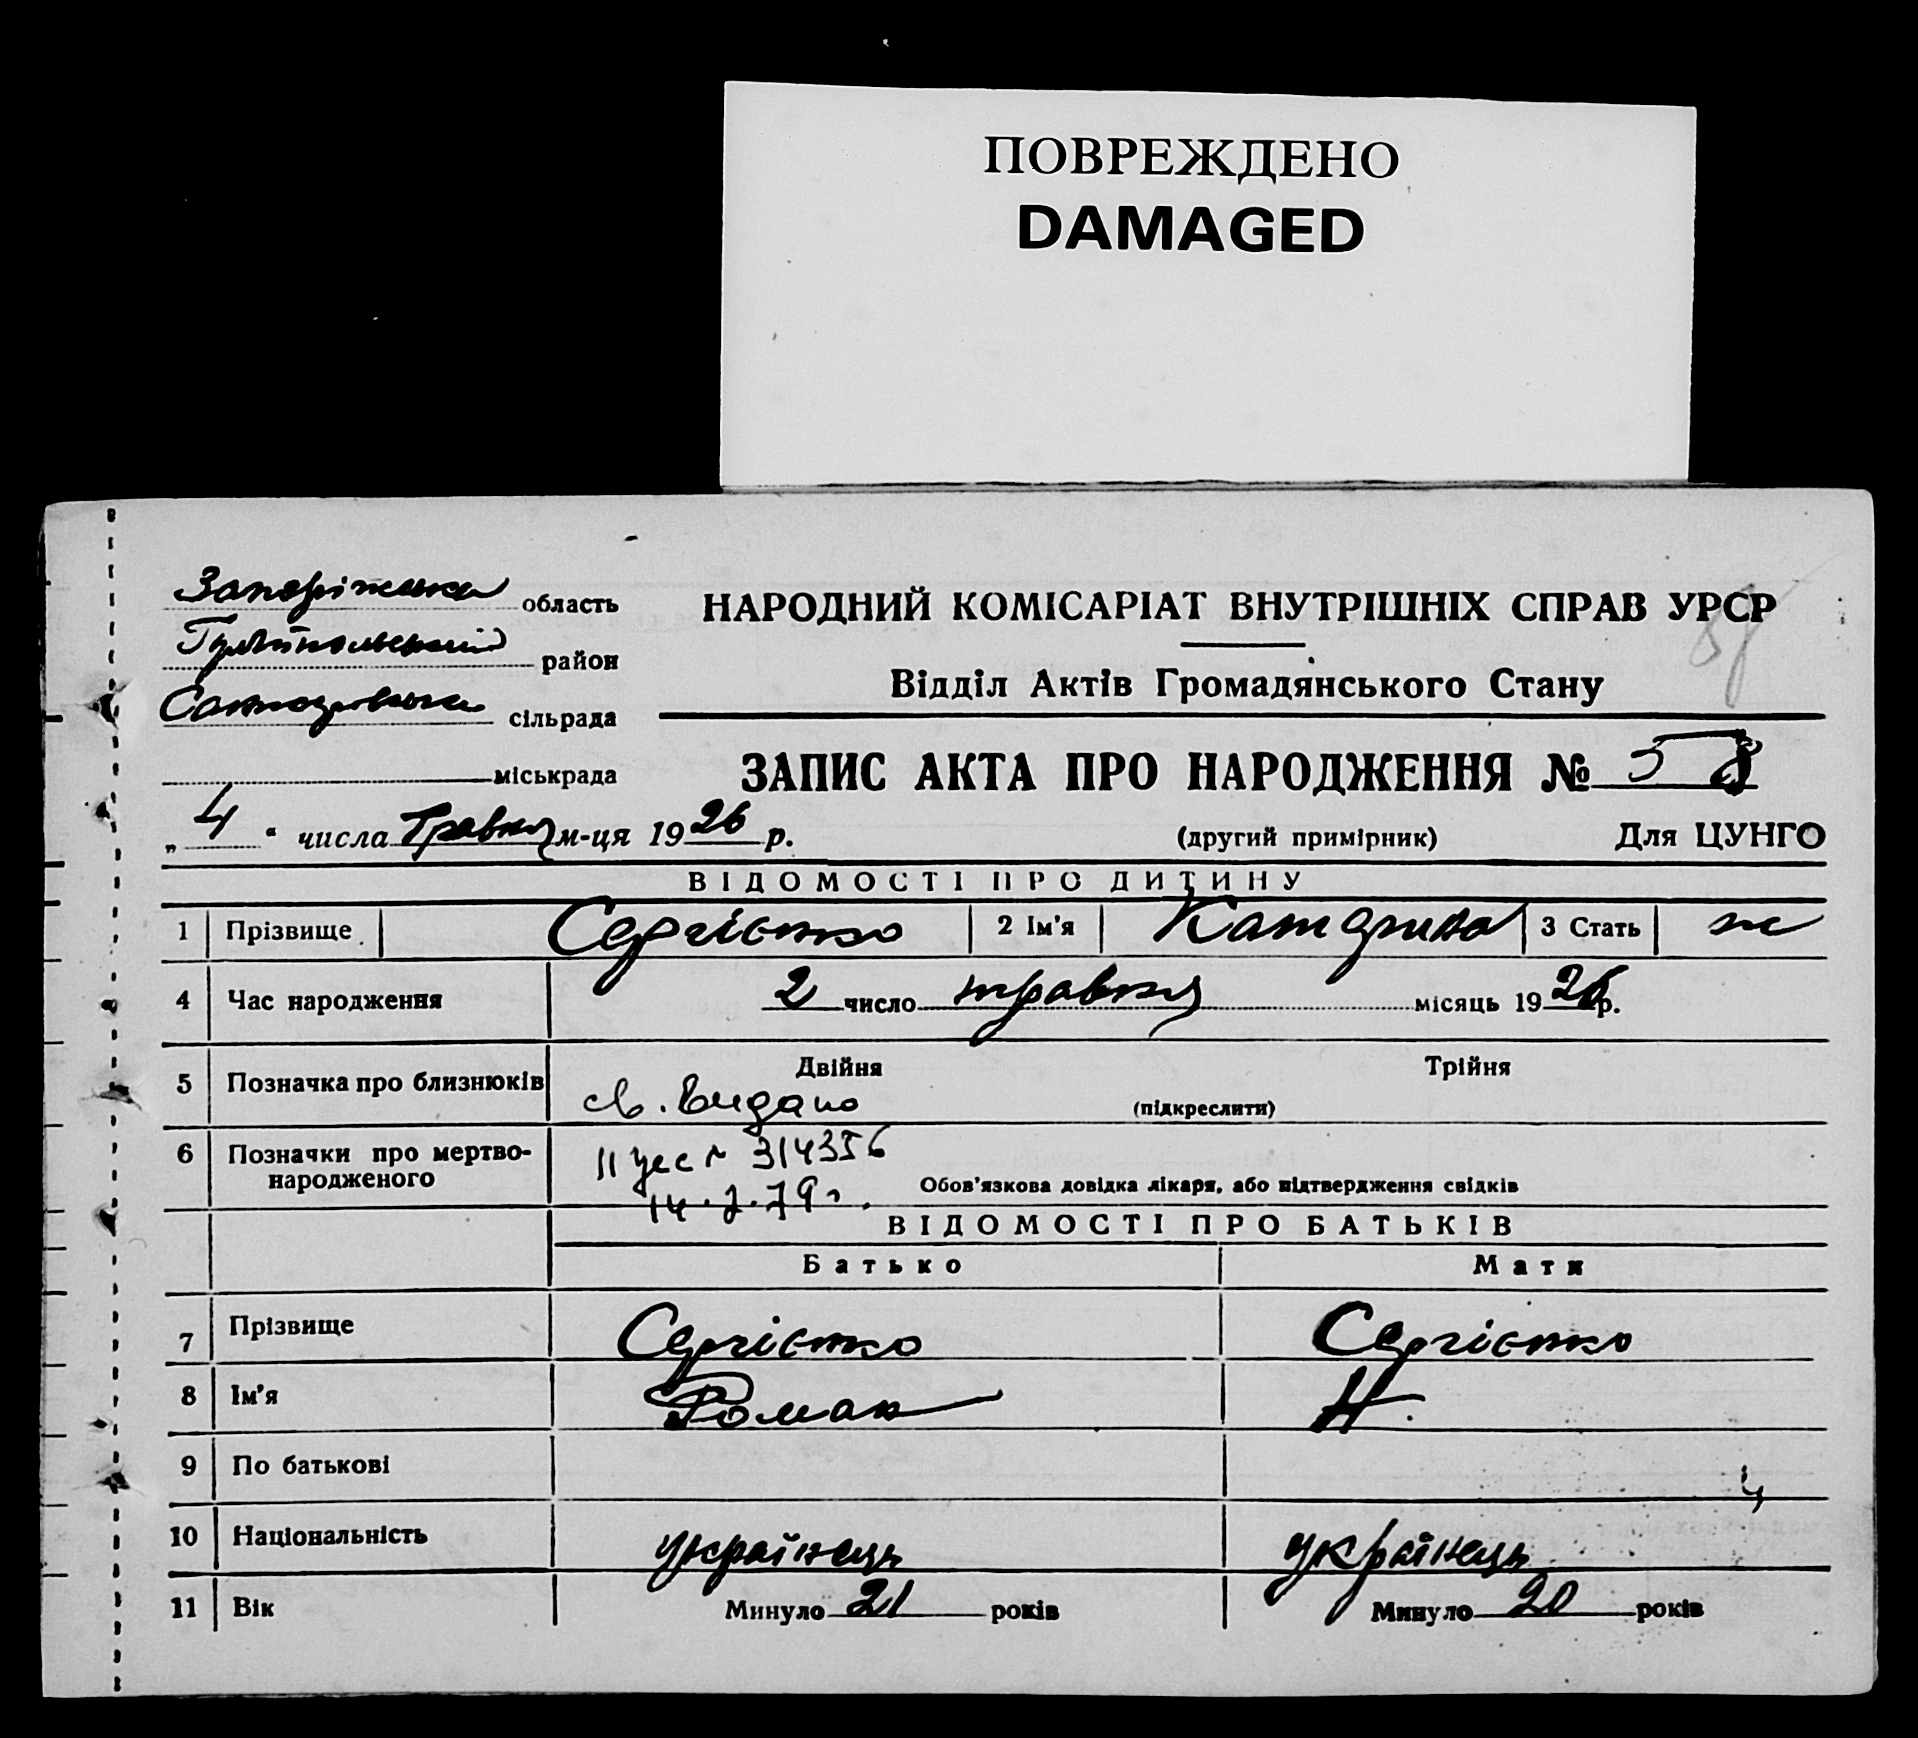 ПОВРЕЖДЕНО
DAMAGED
Запоріжська область
Гуляйпольський район
сільрада
міськрада
НАРОДНИЙ КОМІСАРІАТ ВНУТРІШНІХ СПРАВ УРСР
Відділ Актів Громадянського Стану
ЗАПИС АКТА ПРО НАРОДЖЕННЯ № 58
„4“ числа Травня м-ця 1926 р.
(другий примірник) Для ЦУНГО
ВІДОМОСТІ ПРО ДИТИНУ
1 Прізвище Сергієнко 2 Ім'я Катерина 3 Стать ж
4 Час народження 2 число травня місяць 1926 р.
5 Позначка про близнюків Двійня Трійня
св. видано (підкреслити)
6 Позначки про мертво-
народженого
II № 314356
14. 79г.
Обов'язкова довідка лікаря, або підтвердження свідків
ВІДОМОСТІ ПРО БАТЬКІВ
Батько Мати
7 Прізвище Сергієнко Сергієнко
8 Ім'я Роман Н.
9 По батькові
10 Національність українець українець
11 Вік Минуло 21 років Минуло 20 років